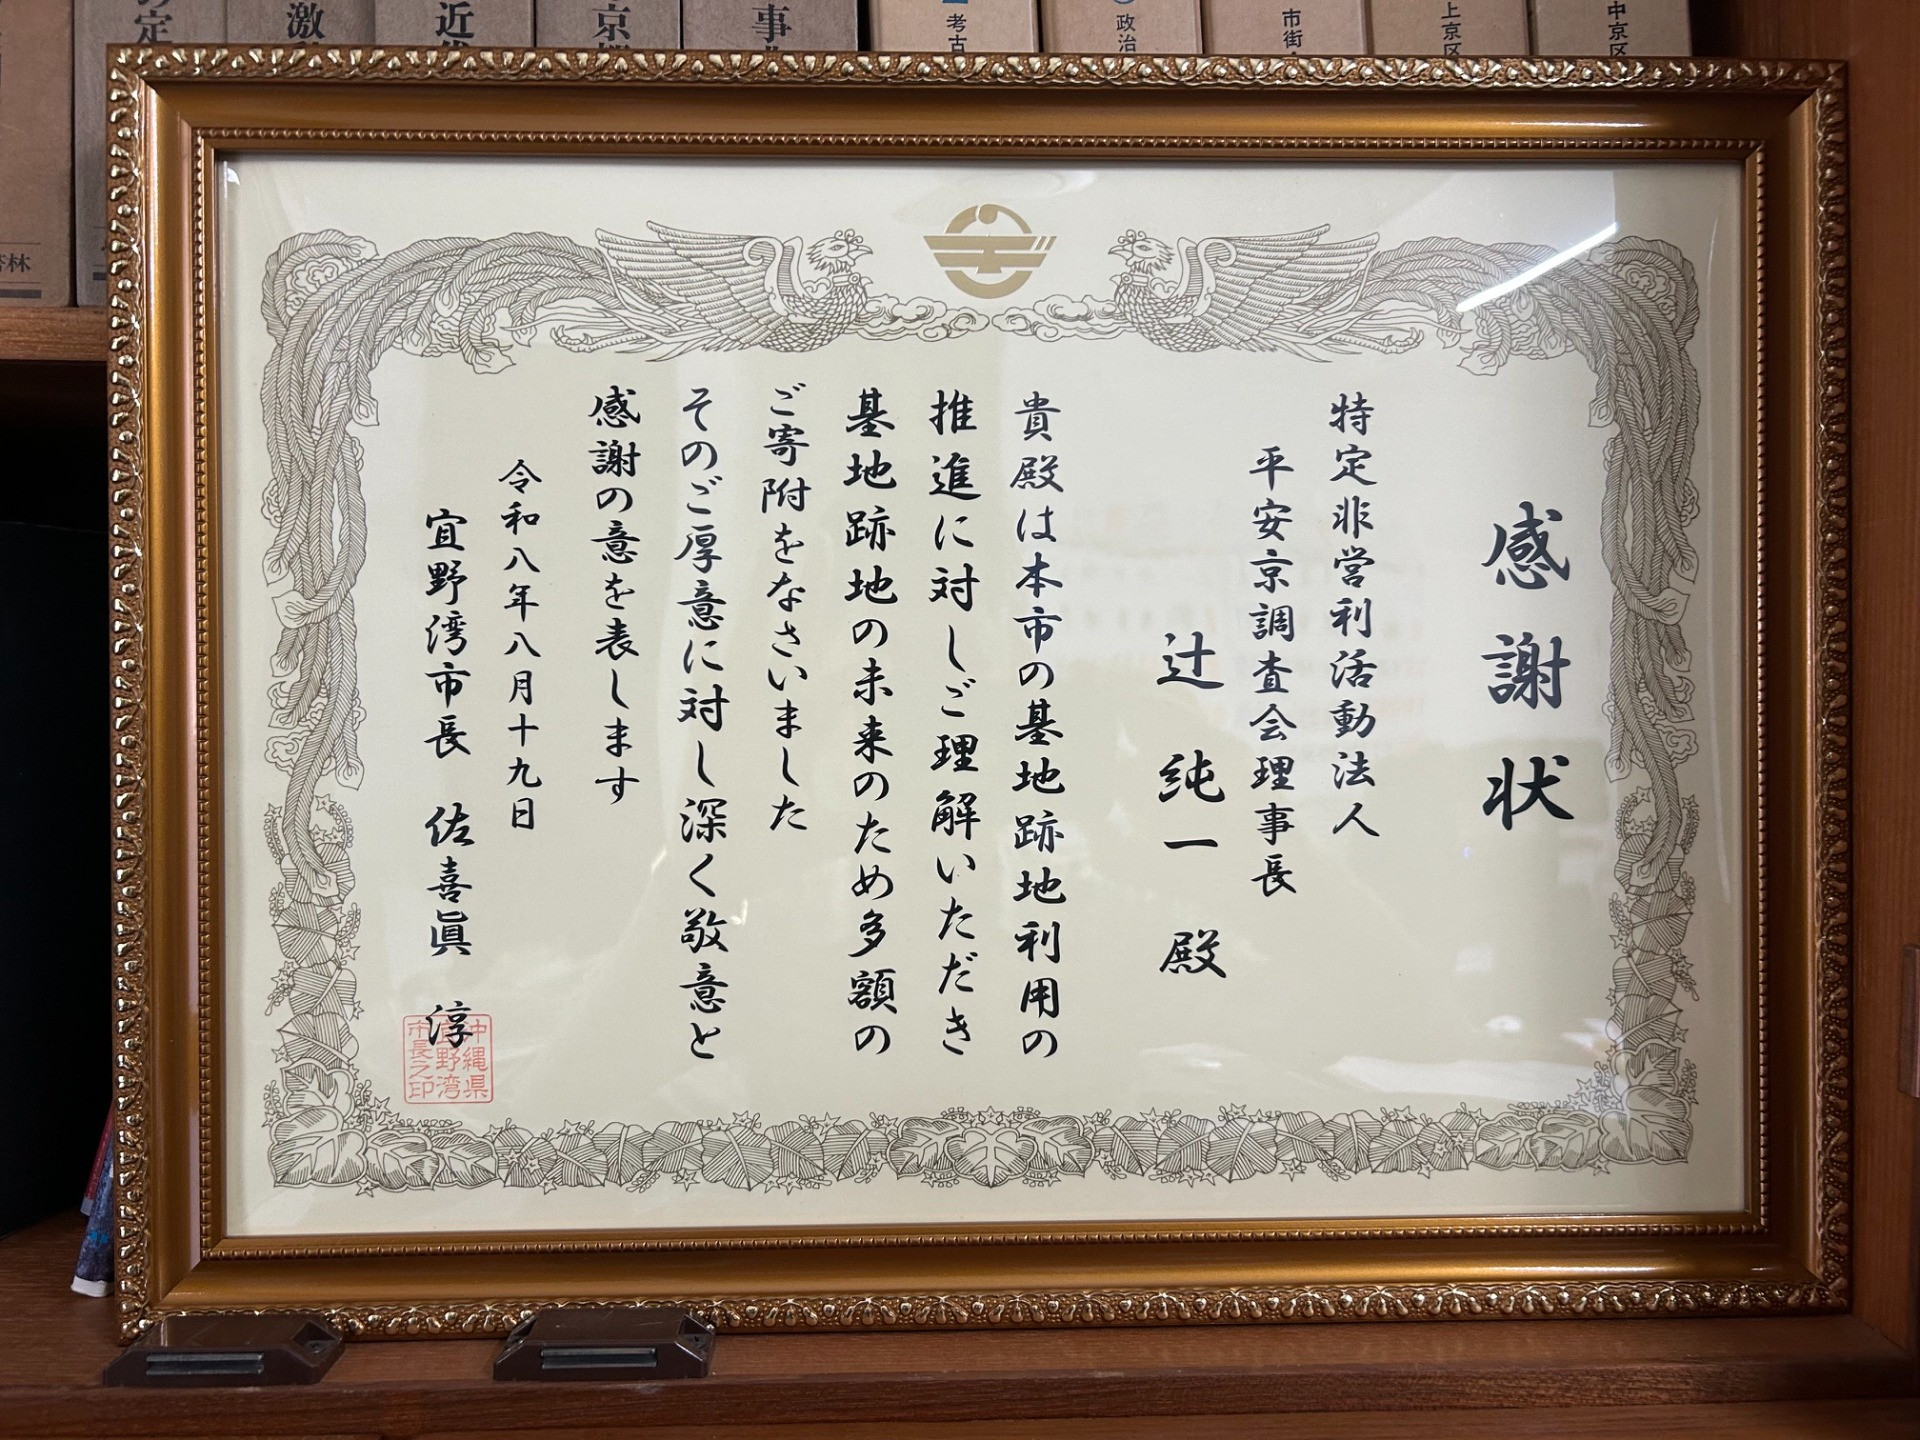 感謝状
特定非営利活動法人
平安京調査会理事長
辻 純一 殿
貴殿は本市の基地跡地利用の
推進に対しご理解いただき
基地跡地の未来のため多額の
ご寄附をなさいました
そのご厚意に対し深く敬意と
感謝の意を表します
令和八年八月十九日
宜野湾市長 佐喜眞 淳
沖縄県
宜野湾
市長之印
考古
政治
市街
上京区
中京区